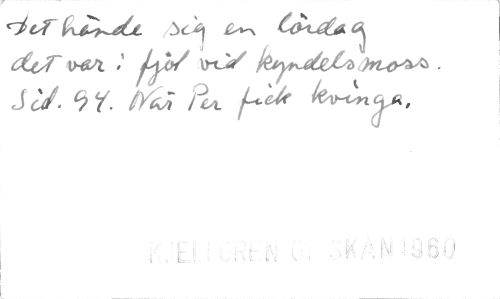 Det hände sig en lördag
det var i fjöl vid kyndelsmoss.
Sid. 94. När Per fick kvinga.
KJELLGREN GL SKÅN 1960